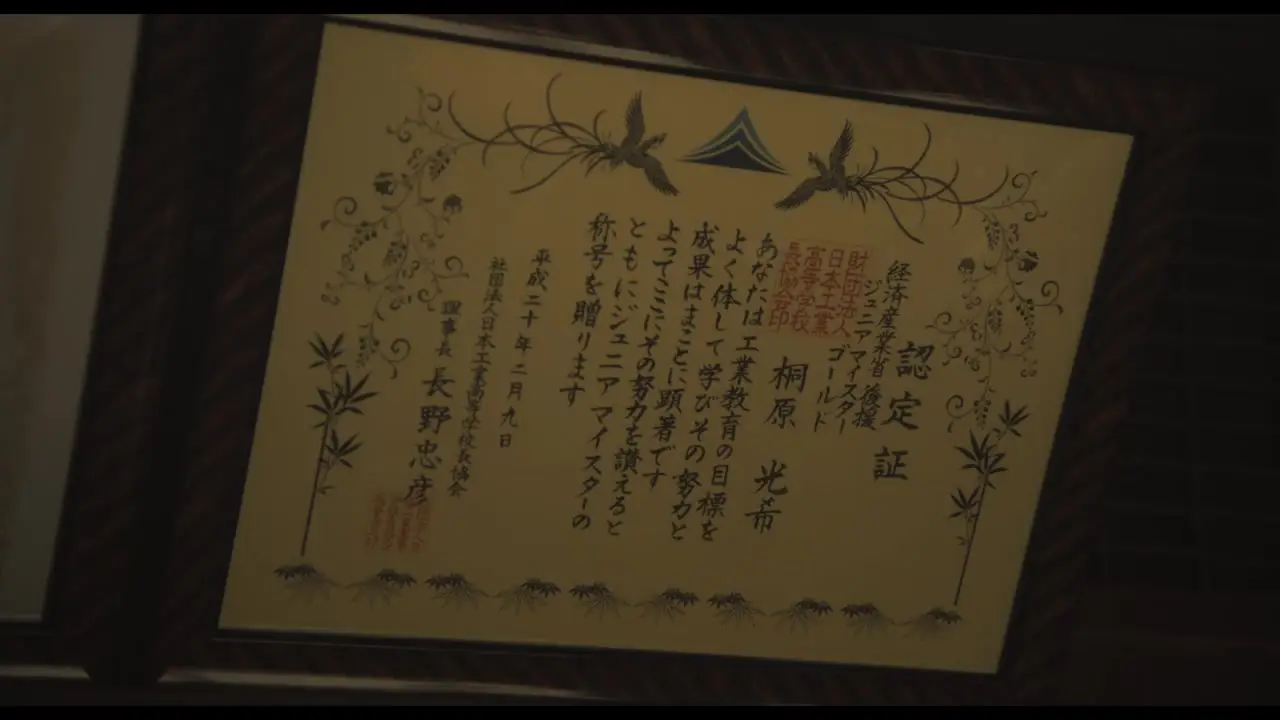 認定証
経済産業省後援
ジュニアマイスター
ゴールド
財団法人
日本工業
高等学校
長協会印
桐原 光希
あなたは工業教育の目標を
よく体して学びその努力と
成果はまことに顕著です
よってここにその努力を讃えると
ともにジュニアマイスターの
称号を贈ります
平成二十年二月九日
社団法人日本工業高等学校長協会
理事長 長野忠彦